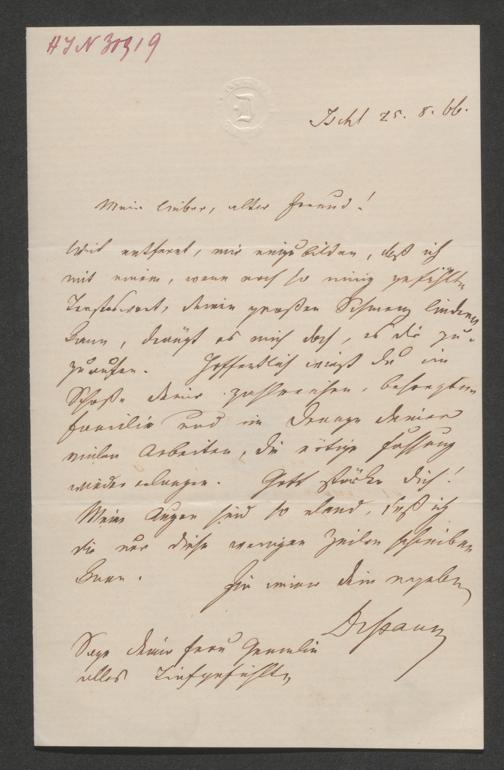 HIN 30319
D
Ischl 25. 8. 66.
Mein lieber, alter Freund!
Weit entfernt, mir einzubilden, daß ich
mit einem, wenn auch so innig gefühlten
Trosteswort, deinen großen Schmerz lindern
kann, drängt es mich doch, es dir zu-
zurufen. Hoffentlich wirst du im
Schoße deiner zahlreichen, besorgten
Familie und im Drange deiner
vielen Arbeiten, die nötige Fassung
wieder erlangen. Gott stärke dich!
Meine Augen sind so elend, daß ich
dir nur diese wenigen Zeilen schreiben
kann.
Für immer dein ergebener
Dessauer
Sage deiner Frau Gemalin
alles Tiefgefühlte